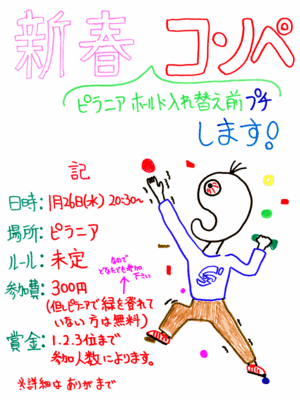 新春 コンペ
ピラニア ホールド入れ替え前 プチ
します!
記
日時: 1月26日(水) 20:30~
場所: ピラニア
ルール: 未定
なので
どなたでも参加
下さい
参加費: 300円
(但しピラニアで緑を登れて
いない方は無料)
賞金: 1.2.3位まで
参加人数によります。
※詳細は おりがまで